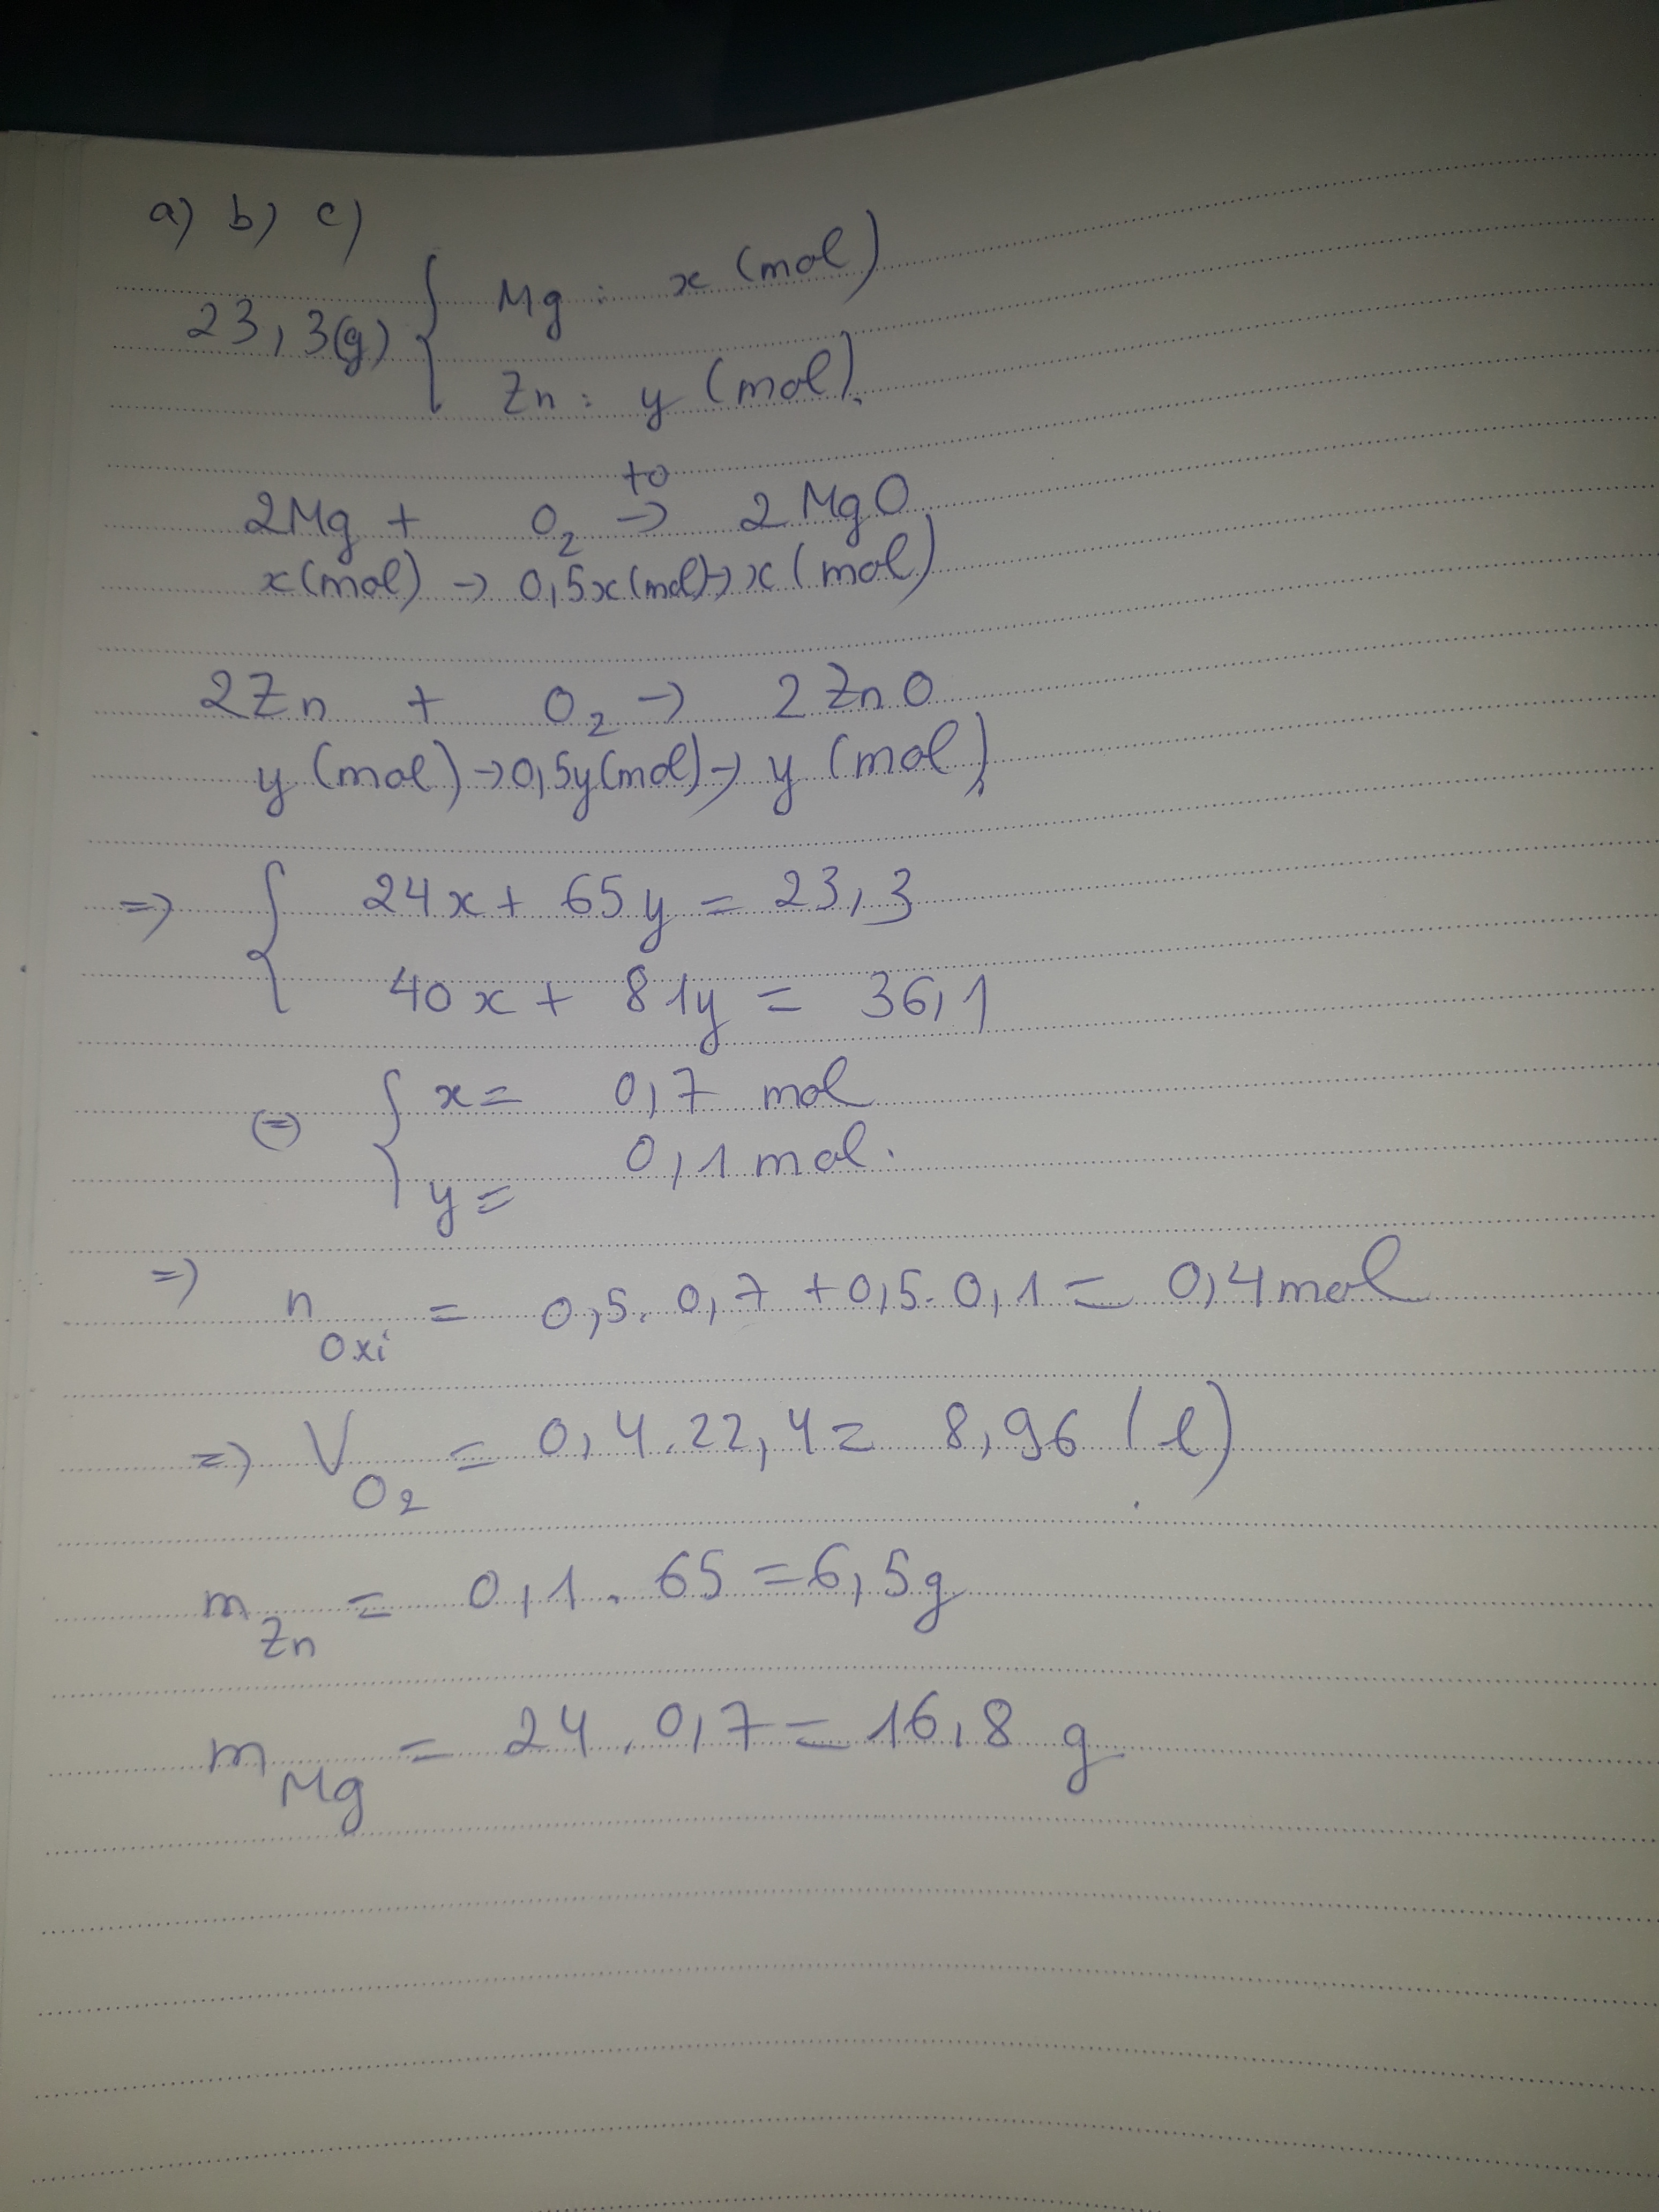 a) b) c)
23,3(g) { Mg : x (mol)
Zn : y (mol).
2Mg + O₂ →^{to} 2MgO
x(mol) → 0,5x(mol) → x(mol)
2Zn + O₂ → 2ZnO
y (mol) → 0,5y(mol) → y (mol)
=> { 24x + 65y = 23,3
40x + 81y = 36,1
(=) { x = 0,7 mol
y = 0,1 mol.
=> n oxi = 0,5. 0,7 + 0,5. 0,1 = 0,4 mol
=> V O₂ = 0,4.22,4 = 8,96 (l)
m Zn = 0,1. 65 = 6,5g
m Mg = 24. 0,7 = 16,8 g